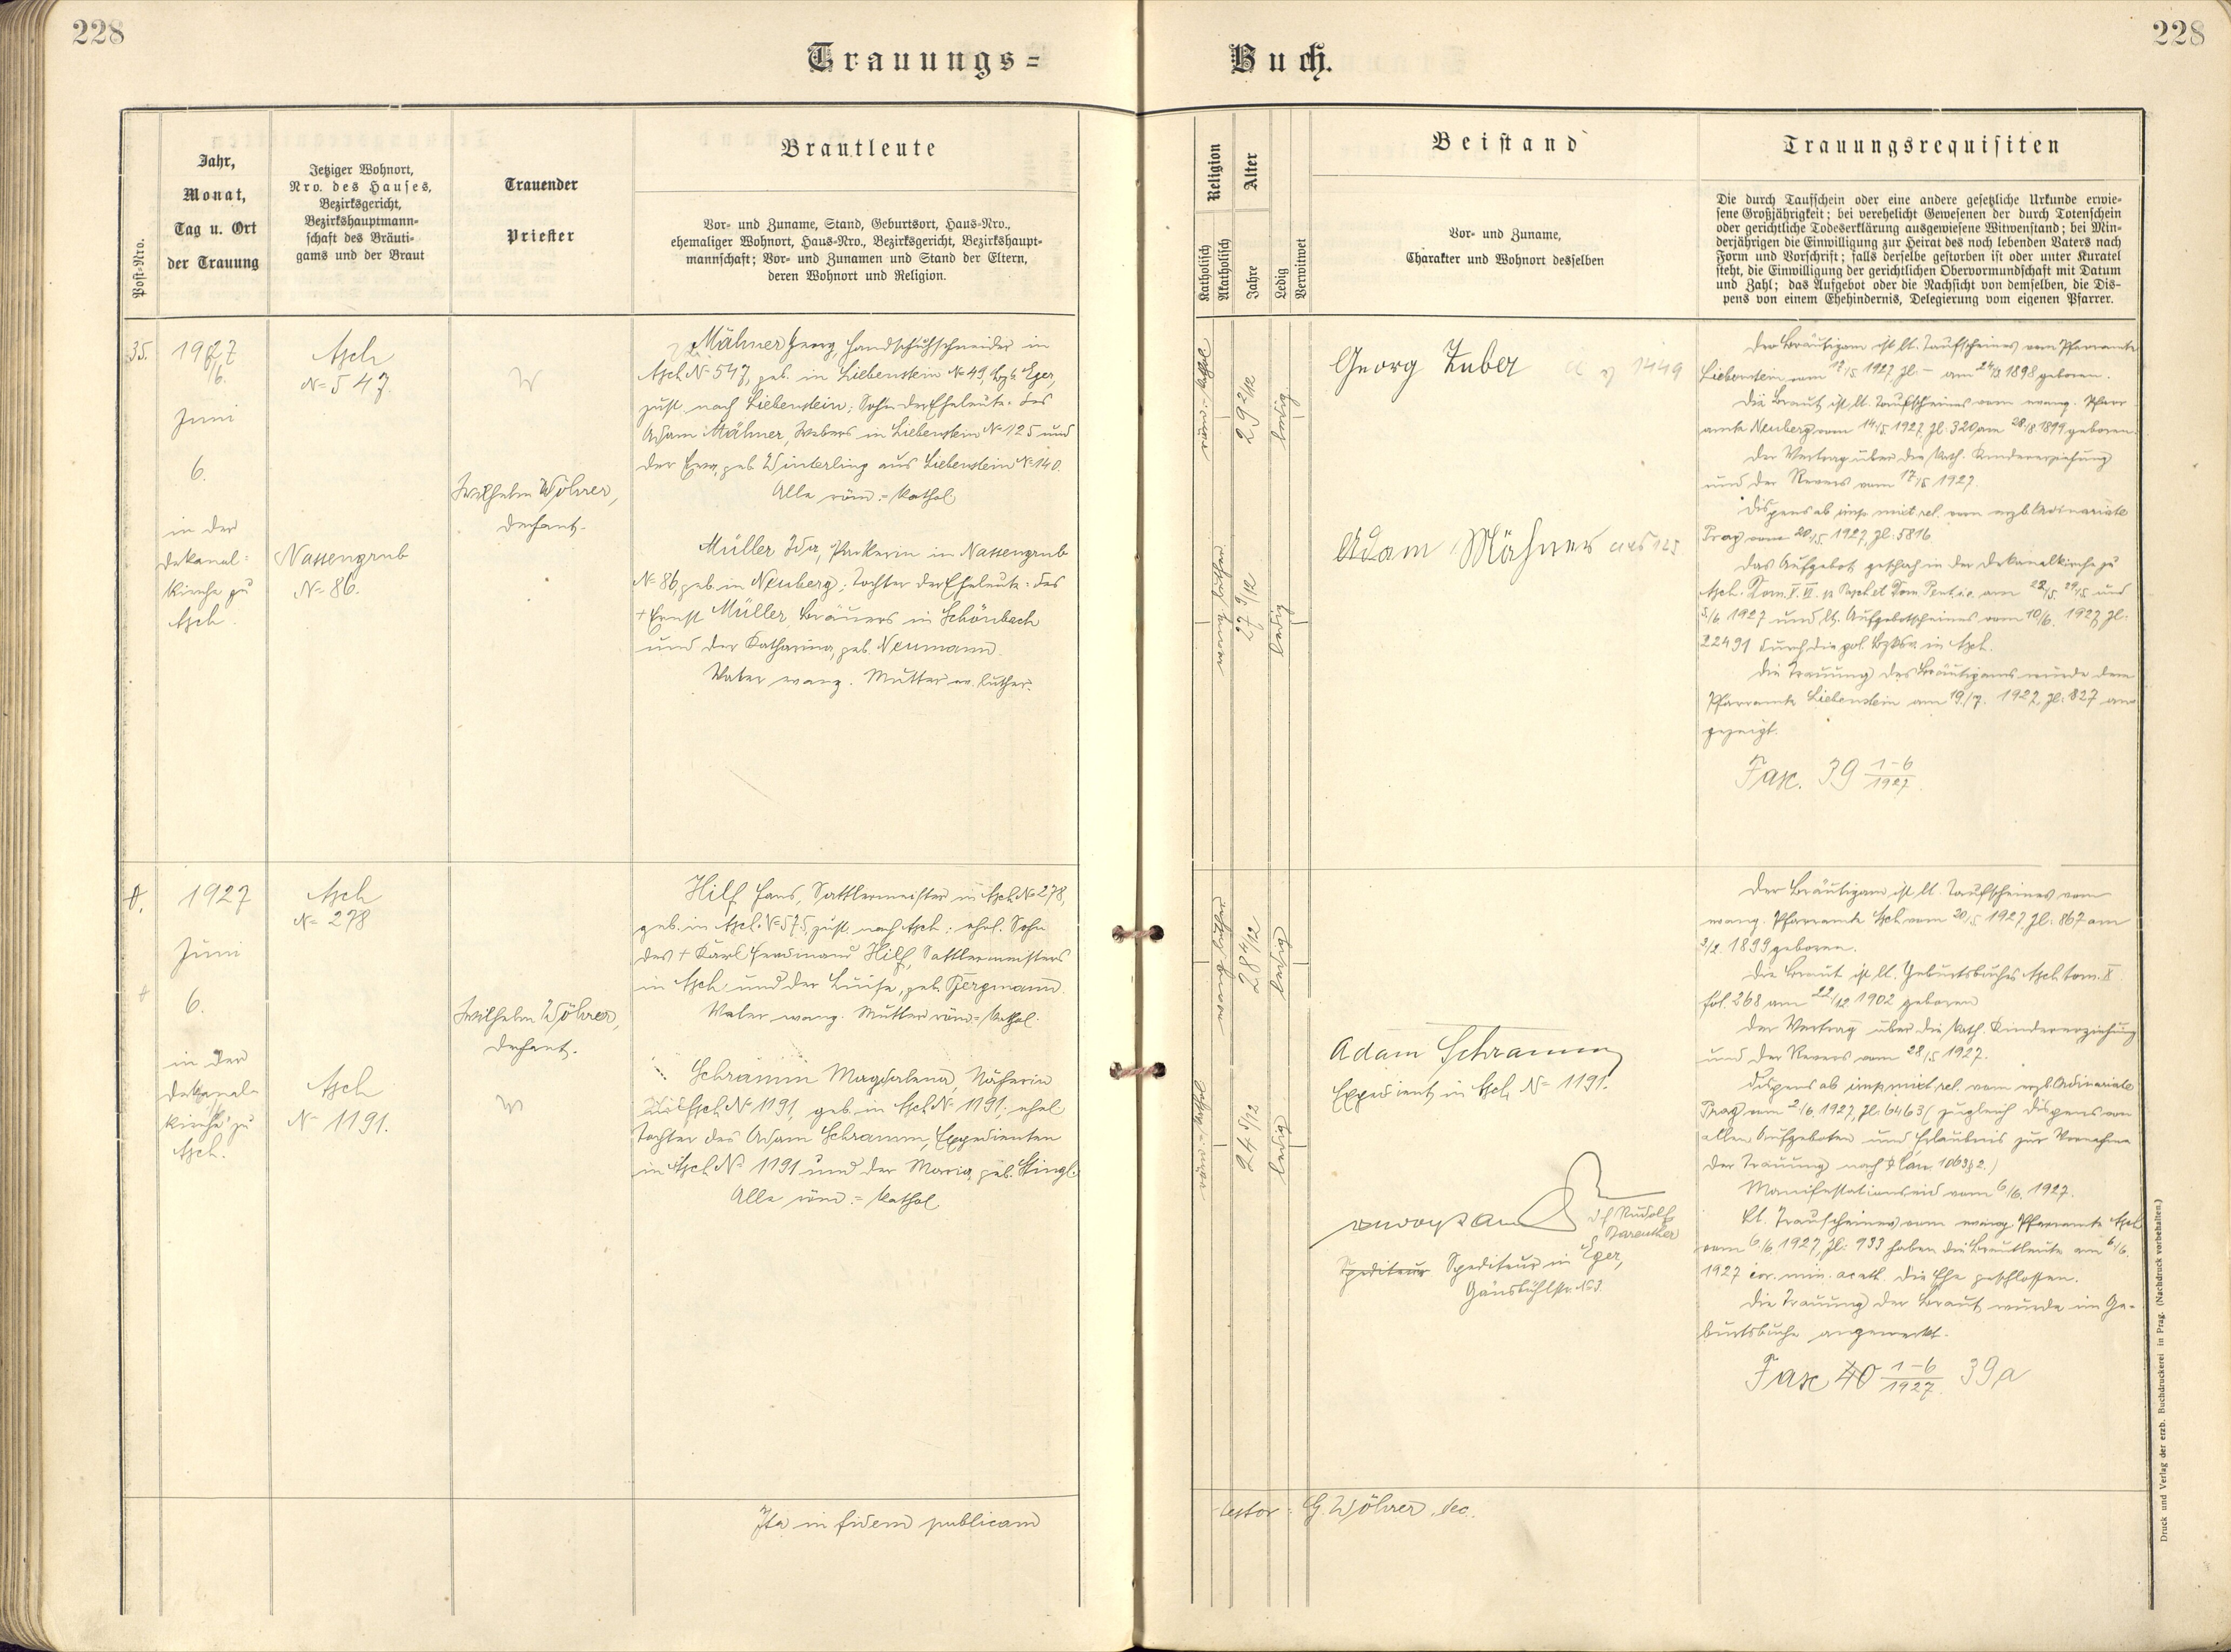 228
228
Trauungs=
Buch.
Post=Nro.
Jahr,
Monat,
Tag u. Ort
der Trauung
Jetziger Wohnort,
Nro. des Hauses,
Bezirksgericht,
Bezirkshauptmann=
schaft des Bräuti=
gams und der Braut
Trauender
Priester
Brautleute
Vor= und Zuname, Stand, Geburtsort, Haus=Nro.,
ehemaliger Wohnort, Haus=Nro., Bezirksgericht, Bezirkshaupt=
mannschaft; Vor= und Zunamen und Stand der Eltern,
deren Wohnort und Religion.
Religion
Katholisch
Akatholisch
Alter
Jahre
Ledig
Verwitwet
Beistand
Vor= und Zuname,
Charakter und Wohnort desselben
Trauungsrequisiten
Die durch Taufschein oder eine andere gesetzliche Urkunde erwie=
sene Großjährigkeit; bei verehelicht Gewesenen der durch Totenschein
oder gerichtliche Todeserklärung ausgewiesene Witwenstand; bei Min=
derjährigen die Einwilligung zur Heirat des noch lebenden Vaters nach
Form und Vorschrift; falls derselbe gestorben ist oder unter Kuratel
steht, die Einwilligung der gerichtlichen Obervormundschaft mit Datum
und Zahl; das Aufgebot oder die Nachsicht von demselben, die Dis=
pens von einem Ehehindernis, Delegierung vom eigenen Pfarrer.
35.
1927
Juni
6.
in der
Dekanal=
kirche zu
Asch.
Asch
No 547.
Nassengrub
No 86.
Wilhelm Wöhrer,
Dechant.
Mähner Georg, Handschuhschneider in
Asch No 547, geb. in Liebenstein No 49, Bzh. Eger,
zust. nach Liebenstein; Sohn der Eheleute: des
Adam Mähner, Webers in Liebenstein No 125 und
der Eva, geb. Winterling aus Liebenstein No 140.
Alle röm.=kathol.
Müller Ida, Packerin in Nassengrub
No 86, geb. in Neuberg; Tochter der Eheleute: des
+ Ernst Müller, Bräuers in Schönbach
und der Katharina, geb. Neumann.
Vater evang. Mutter ev. luther.
röm.=kathol.
29 2/12
ledig
evang. luther.
27 9/12
ledig
Georg Zuber 1449
Adam Mähner aus 125
Der Bräutigam ist lt. Taufscheines vom Pfarramte
Liebenstein vom 17/5. 1927, Zl. – am 24/3 1898 geboren.
Die Braut ist lt. Taufscheines vom evang. Pfarr
amte Neuberg vom 14/5. 1927, Zl. 320 am 28/8. 1899 geboren.
Der Vertrag über die kath. Kindererziehung
und der Revers vom 17/5 1927.
Dispens ab imp. mixt. rel. vom erzb. Ordinariate
Prag vom 20/5 1927, Zl. 5816.
Das Aufgebot geschah in der Dekanalkirche zu
Asch. Dom. V. VI. p. Pasch. et Dom. Pent. i. e. am 22/5. 29/5 und
5/6 1927 und lt. Aufgebotscheines vom 10/6. 1927, Zl.
22491 durch die pol. Bzksv. in Asch.
Die Trauung des Bräutigams wurde dem
Pfarramte Liebenstein am 19./7. 1927, Zl. 827 an=
gezeigt.
Fasc. 39 1-6/1927
1927
Juni
6.
in der
Dekanal=
kirche zu
Asch.
Asch
No 278
Asch
No 1191.
Wilhelm Wöhrer,
Dechant.
Hilf Hans, Sattlermeister in Asch No 278,
geb. in Asch No 575, zust. nach Asch; ehel. Sohn
des + Karl Ferdinand Hilf, Sattlermeisters
in Asch und der Luise, geb. Bergmann.
Vater evang. Mutter röm.=kathol.
Schramm Magdalena, Näherin
in Asch No 1191, geb. in Asch No 1191; ehel.
Tochter des Adam Schramm, Expedienten
in Asch No 1191 und der Maria, geb. Stingl.
Alle röm.=kathol.
evang. luther.
28 4/12
ledig
röm.=kathol.
24 5/12
ledig
Adam Schramm
Expedient in Asch, No 1191.
Rudolf
Bareuther
Spediteur Spediteur in Eger,
Gänsbühlstr. No 3.
Der Bräutigam ist lt. Taufscheines vom
evang. Pfarramte Asch vom 20/5 1927, Zl. 867 am
3/2. 1899 geboren.
Die Braut ist lt. Geburtsbuches Asch tom. X
fol. 268 am 22/12 1902 geboren.
Der Vertrag über die kath. Kindererziehung
und der Revers vom 28/5 1927.
Dispens ab imp. mixt. rel. vom erzb. Ordinariate
Prag vom 2/6. 1927, Zl. 6463 (zugleich Dispens von
allen Aufgeboten und Erlaubnis zur Vornahme
der Trauung nach Can. 1063 § 2.)
Manifestationseid vom 6/6. 1927.
Lt. Trauscheines vom evang. Pfarramte Asch
vom 6/6. 1927, Zl. 933 haben die Brautleute am 6/6.
1927 cor. min. acath. die Ehe geschlossen.
Die Trauung der Braut wurde im Ge=
burtsbuche angemerkt.
Fasc 40 1-6/1927 39a
Ita in fidem publicam
testor: G. Wöhrer, dec.
Druck und Verlag der erzb. Buchdruckerei in Prag. (Nachdruck vorbehalten.)